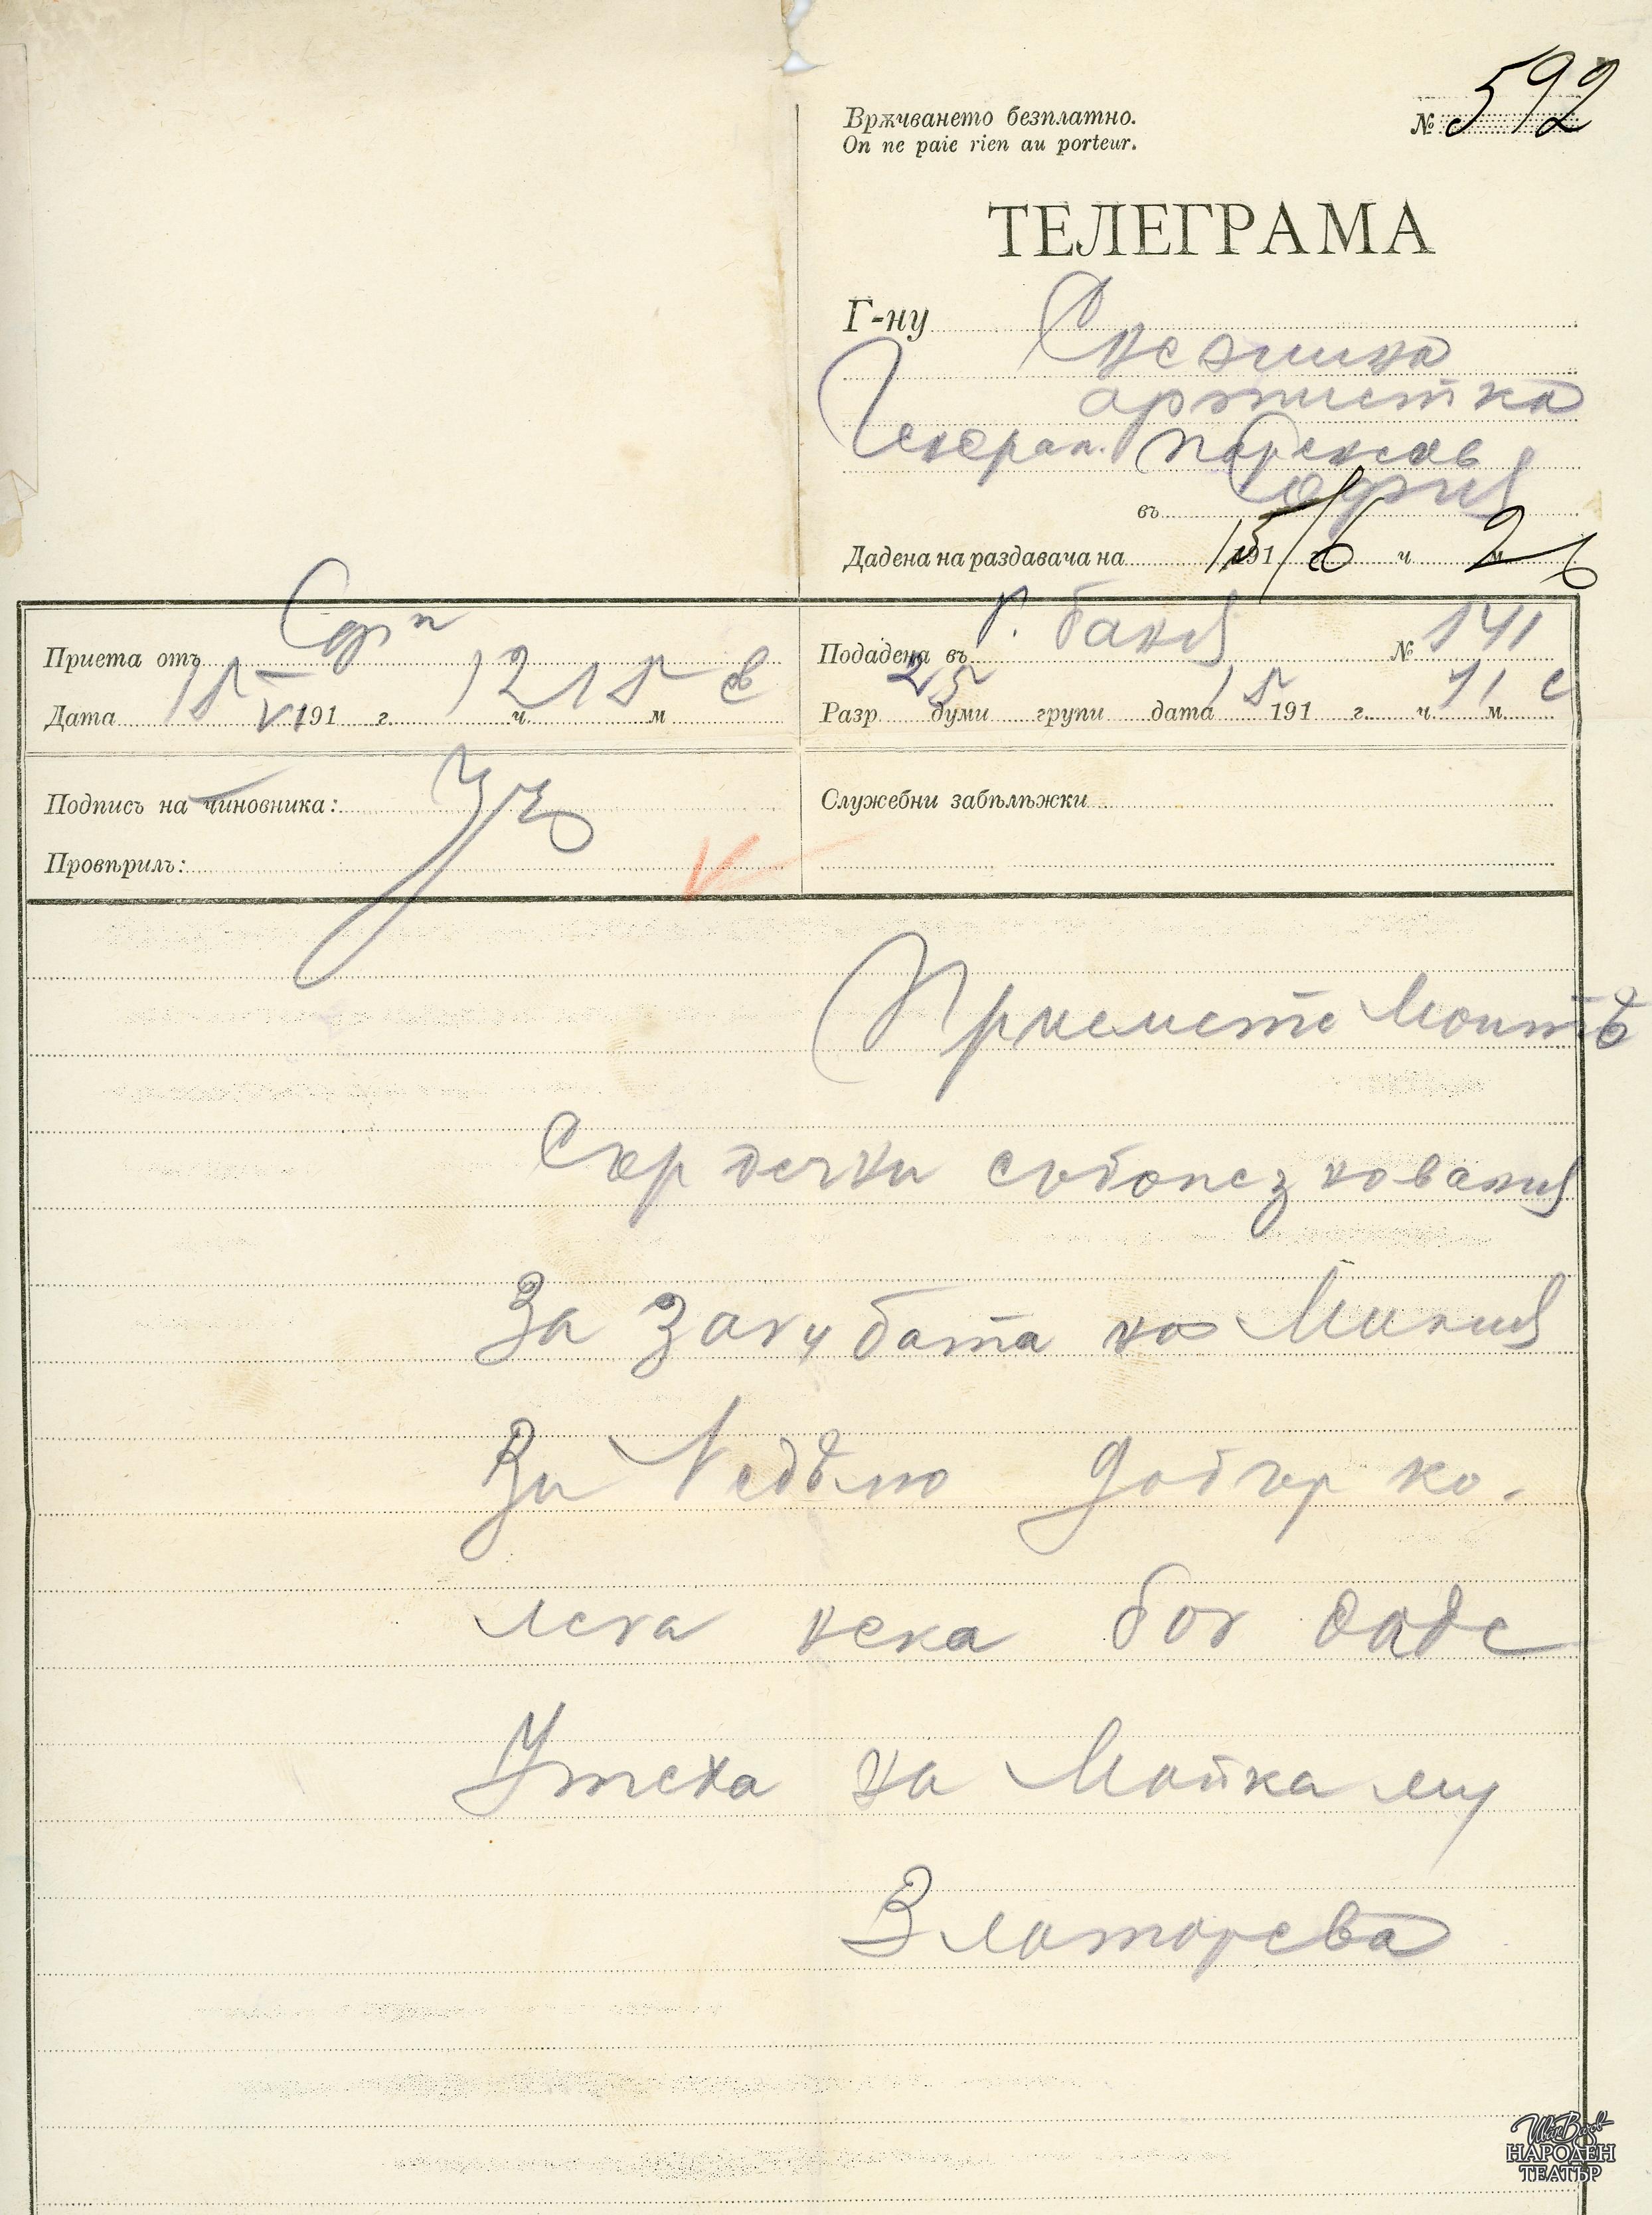 Врѫчването безплатно.
On ne paie rien au porteur.
№ 592
ТЕЛЕГРАМА
Г-ну Снежина
артистка
Генерал. Паренсов
въ София
Дадена на раздавача на 15/6 191 ч. м. 26
Приета отъ Сф п
Дата 15 VI 191 г. 12 ч. 15 м
Подадена въ Г. Баня № 141
Разр 25 думи групи дата 15 191 г. ч. 11 м.
Подписъ на чиновника:
Провѣрилъ:
Служебни забѣлѣжки
Приемете Моитѣ
Сърдечни съболезнования
За загубата на Милия
Ви Недѣлю Добър ко-
лега нека бог даде
Утеха на Майка му
Златорева
Иван Вазов
НАРОДЕН
ТЕАТЪР